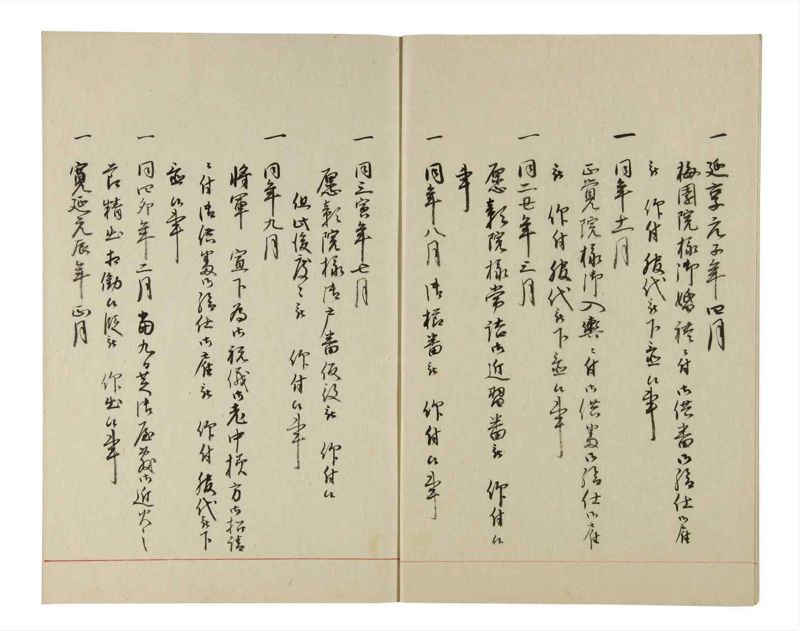 一 延享元子年四月
梅園院様御婚礼ニ付御供番御給仕御雇
被 仰付殿代被下置候事
一 同年十一月
正覚院様御入輿ニ付御供番御給仕御雇
被 仰付 代被下置候事
一 同二丑年三月
院様常詰御近習番被 仰付候
事
一 同年八月 御 番被 仰付候事
一 同三寅年七月
院様御戸番仮役被 仰付候
但此後度々被 仰付候事
一 同年九月
将軍 宣下為御祝儀御老中様方御招請
ニ付御供番御給仕御雇被 仰付 代被下
置候事
一 同四卯年二月 九 御屋 御近火之
節精出相勤候段被 仰出候事
一 寛延元辰年正月